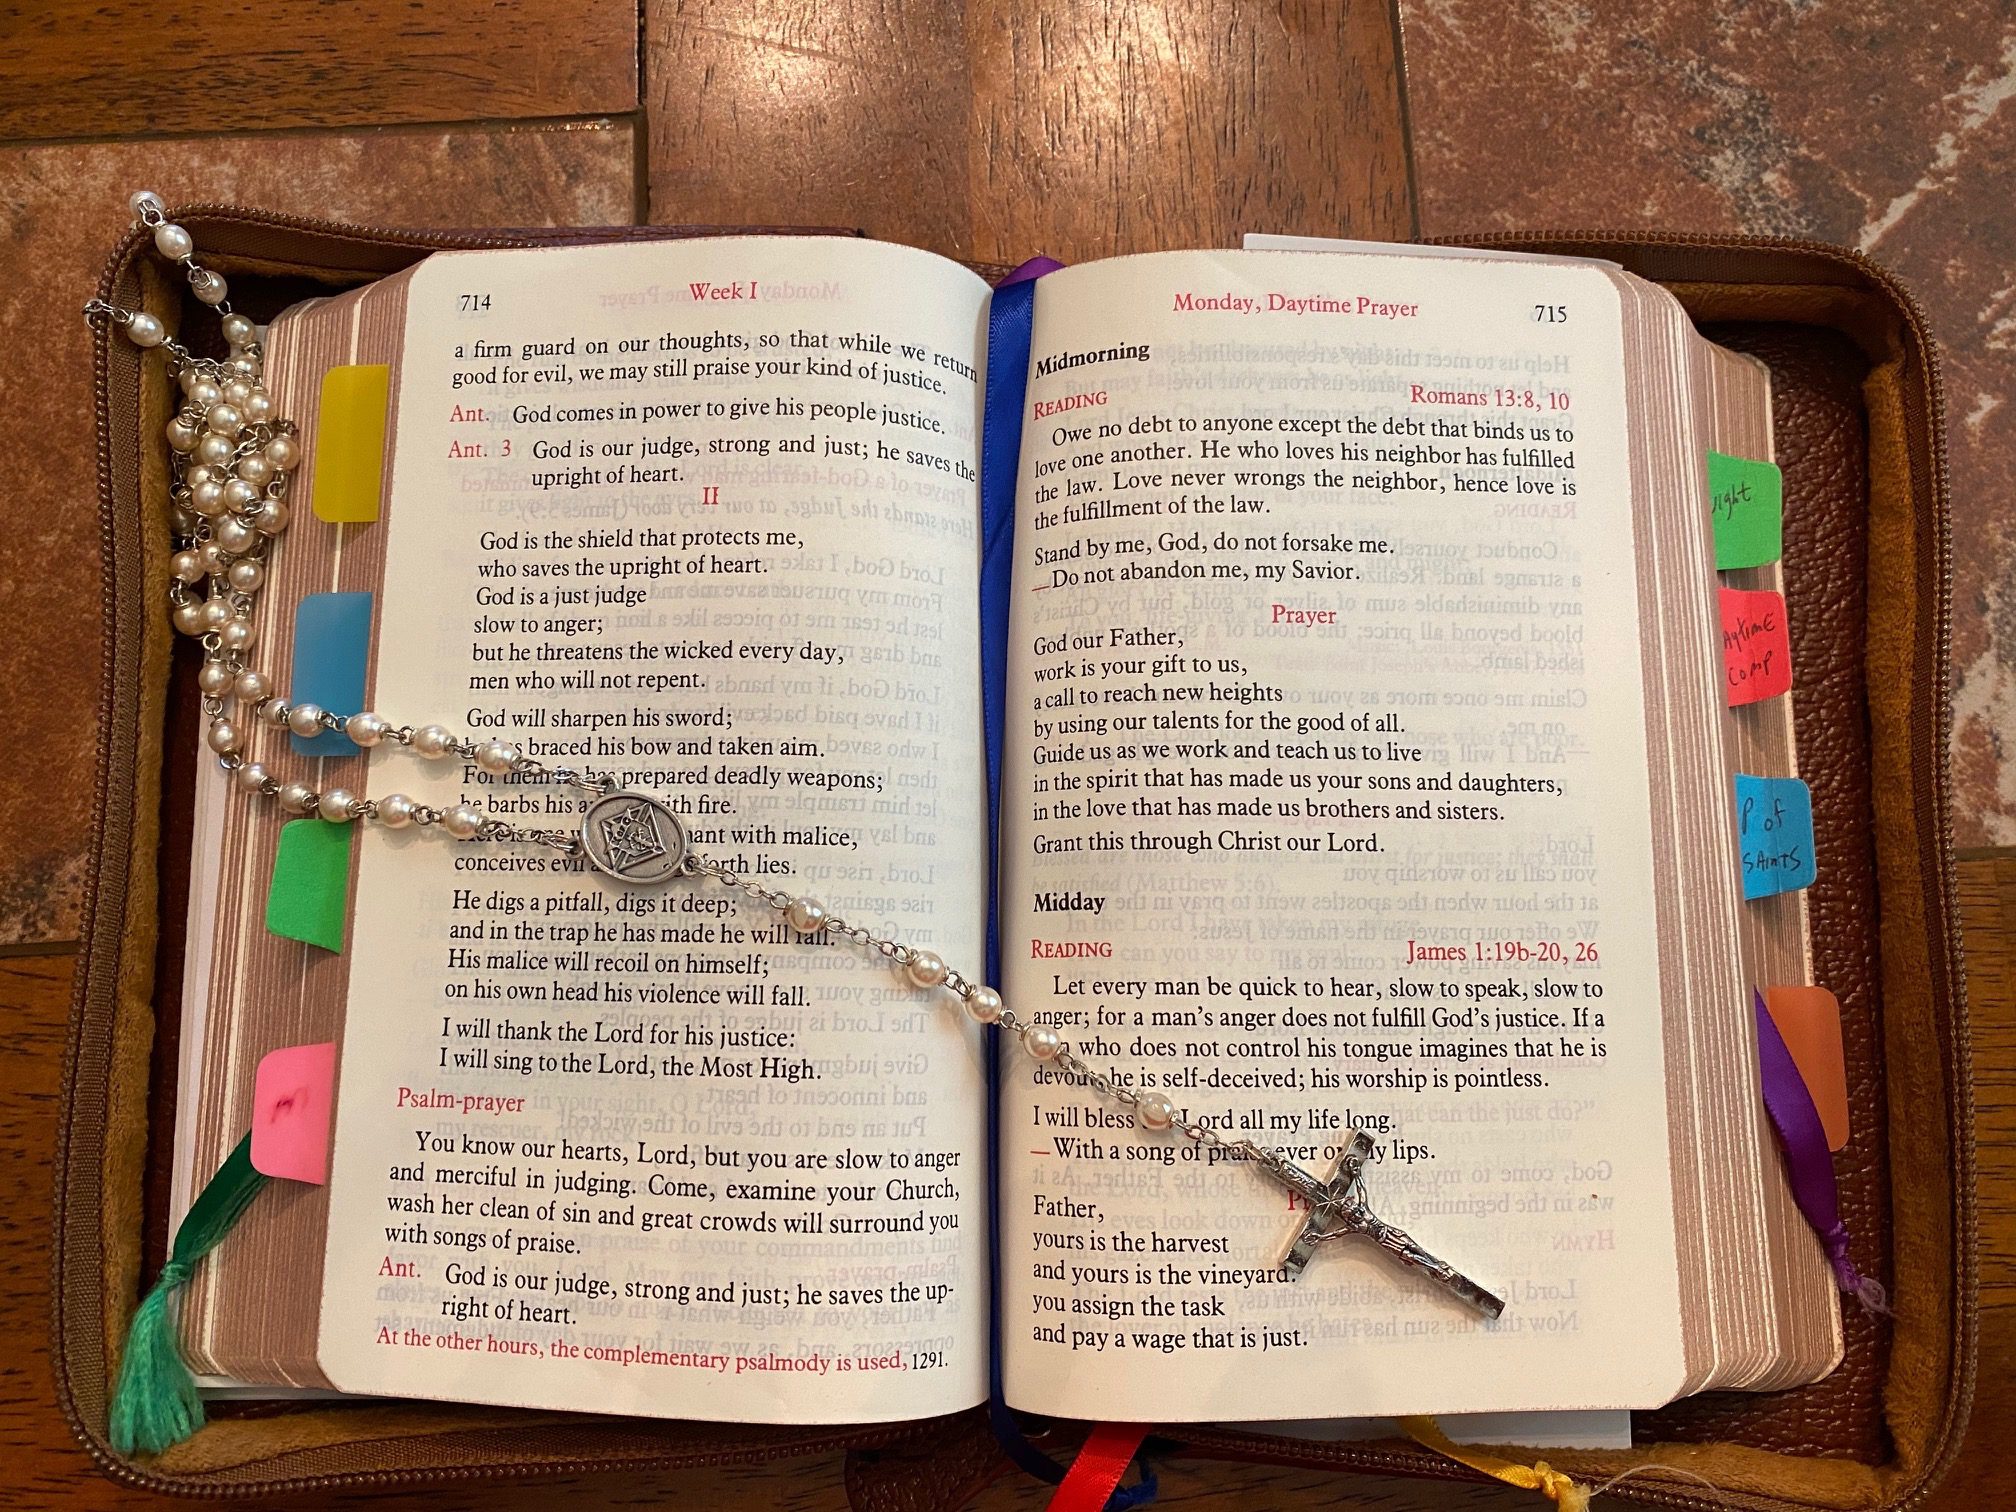 714
Week I
a firm guard on our thoughts, so that while we return
good for evil, we may still praise your kind of justice.
Ant. God comes in power to give his people justice.
Ant. 3 God is our judge, strong and just; he saves the
upright of heart.
II
God is the shield that protects me,
who saves the upright of heart.
God is a just judge
slow to anger;
but he threatens the wicked every day,
men who will not repent.
God will sharpen his sword;
braced his bow and taken aim.
For them he has prepared deadly weapons;
he barbs his with fire.
with malice,
conceives evil forth lies.
He digs a pitfall, digs it deep;
and in the trap he has made he will fall.
His malice will recoil on himself;
on his own head his violence will fall.
I will thank the Lord for his justice:
I will sing to the Lord, the Most High.
Psalm-prayer
You know our hearts, Lord, but you are slow to anger
and merciful in judging. Come, examine your Church,
wash her clean of sin and great crowds will surround you
with songs of praise.
Ant. God is our judge, strong and just; he saves the up-
right of heart.
At the other hours, the complementary psalmody is used, 1291.
Monday, Daytime Prayer
715
Midmorning
READING Romans 13:8, 10
Owe no debt to anyone except the debt that binds us to
love one another. He who loves his neighbor has fulfilled
the law. Love never wrongs the neighbor, hence love is
the fulfillment of the law.
Stand by me, God, do not forsake me.
—Do not abandon me, my Savior.
Prayer
God our Father,
work is your gift to us,
a call to reach new heights
by using our talents for the good of all.
Guide us as we work and teach us to live
in the spirit that has made us your sons and daughters,
in the love that has made us brothers and sisters.
Grant this through Christ our Lord.
Midday
READING James 1:19b-20, 26
Let every man be quick to hear, slow to speak, slow to
anger; for a man's anger does not fulfill God's justice. If a
who does not control his tongue imagines that he is
devout, he is self-deceived; his worship is pointless.
I will bless Lord all my life long.
—With a song of praise ever on my lips.
Father,
yours is the harvest
and yours is the vineyard:
you assign the task
and pay a wage that is just.
ight
aytime
Comp
P of
Saints